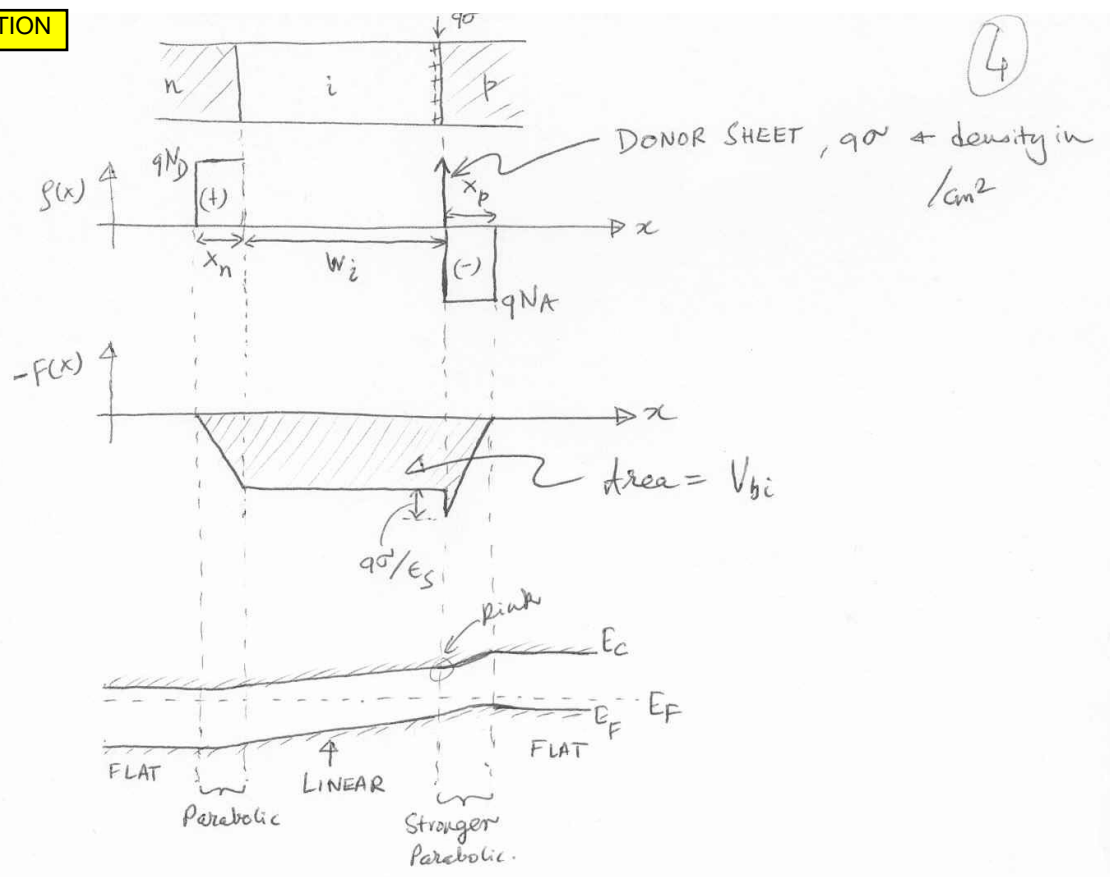 TION
qσ
4
n
i
p
DONOR SHEET, qσ ← density in
/cm²
ρ(x)
qN_D
(+)
x_p
x
x_n
W_i
(-)
qN_A
-F(x)
x
Area = V_bi
qσ/ε_s
kink
E_C
E_F
E_F
FLAT
LINEAR
FLAT
Parabolic
Stronger
Parabolic.